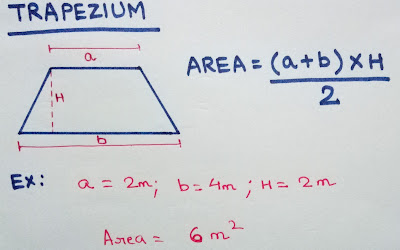 TRAPEZIUM
a
H
b
AREA = (a+b) x H
2
Ex: a = 2m; b = 4m; H = 2m
Area = 6 m²